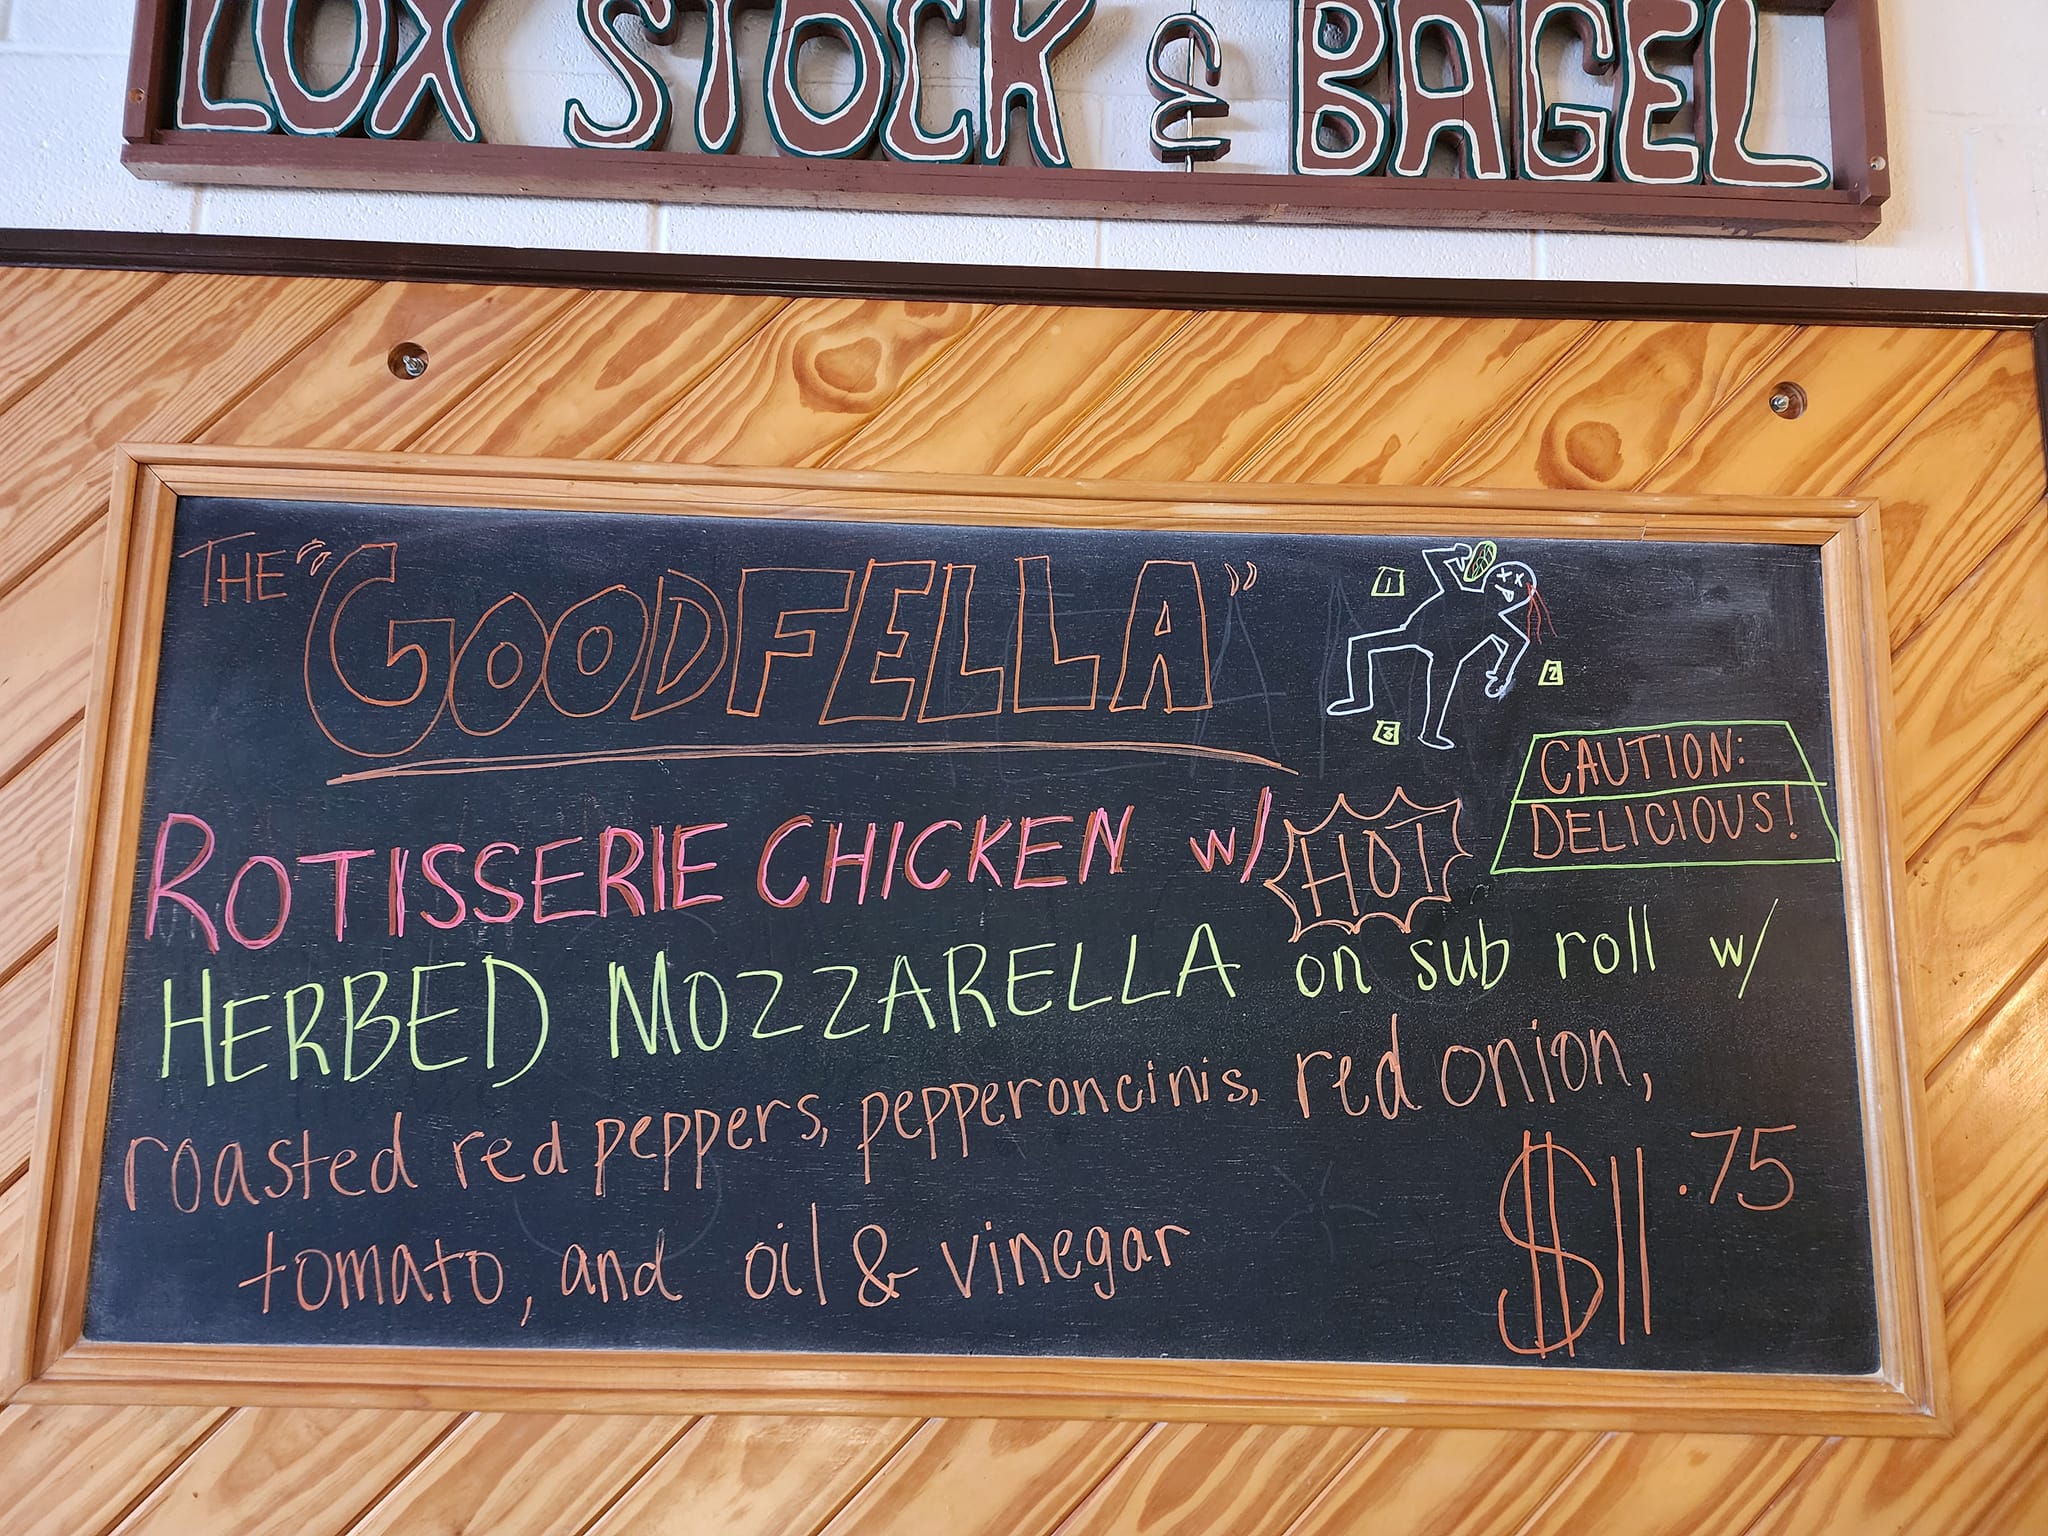 LOX STOCK & BAGEL
THE "GOODFELLA"
1
2
3
CAUTION:
DELICIOUS!
ROTISSERIE CHICKEN w/ HOT
HERBED MOZZARELLA on sub roll w/
roasted red peppers, pepperoncinis, red onion,
tomato, and oil & vinegar
$11.75